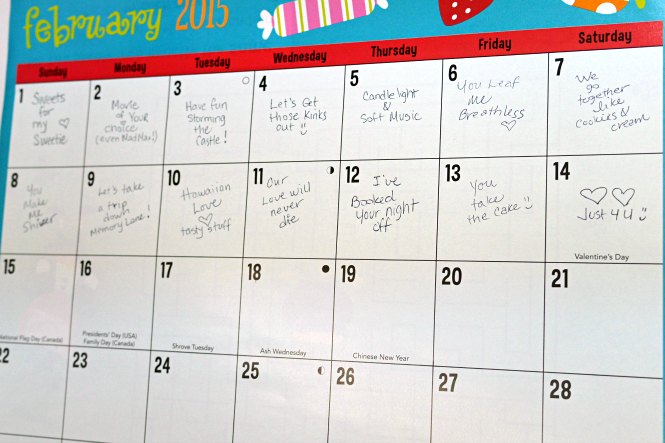 february 2015
Sunday Monday Tuesday Wednesday Thursday Friday Saturday
1
Sweets
for
my
Sweetie
2
Movie
of Your
choice
(even Mad Max!)
3
Have fun
Storming
the
Castle!
4
Let's Get
those Kinks
out
5
Candlelight
&
Soft Music
6
You Leaf
me
Breathless
7
We
go
together
like
cookies &
cream
8
You
Make
Me
Shiver
9
Let's take
a trip
down
Memory Lane!
10
Hawaiian
Love
tasty stuff
11
Our
Love will
never
die
12
I've
Booked
your night
off
13
You
take
the cake
14
Just 4 U
Valentine's Day
15
National Flag Day (Canada)
16
Presidents' Day (USA)
Family Day (Canada)
17
Shrove Tuesday
18
Ash Wednesday
19
Chinese New Year
20
21
22
23
24
25
26
27
28